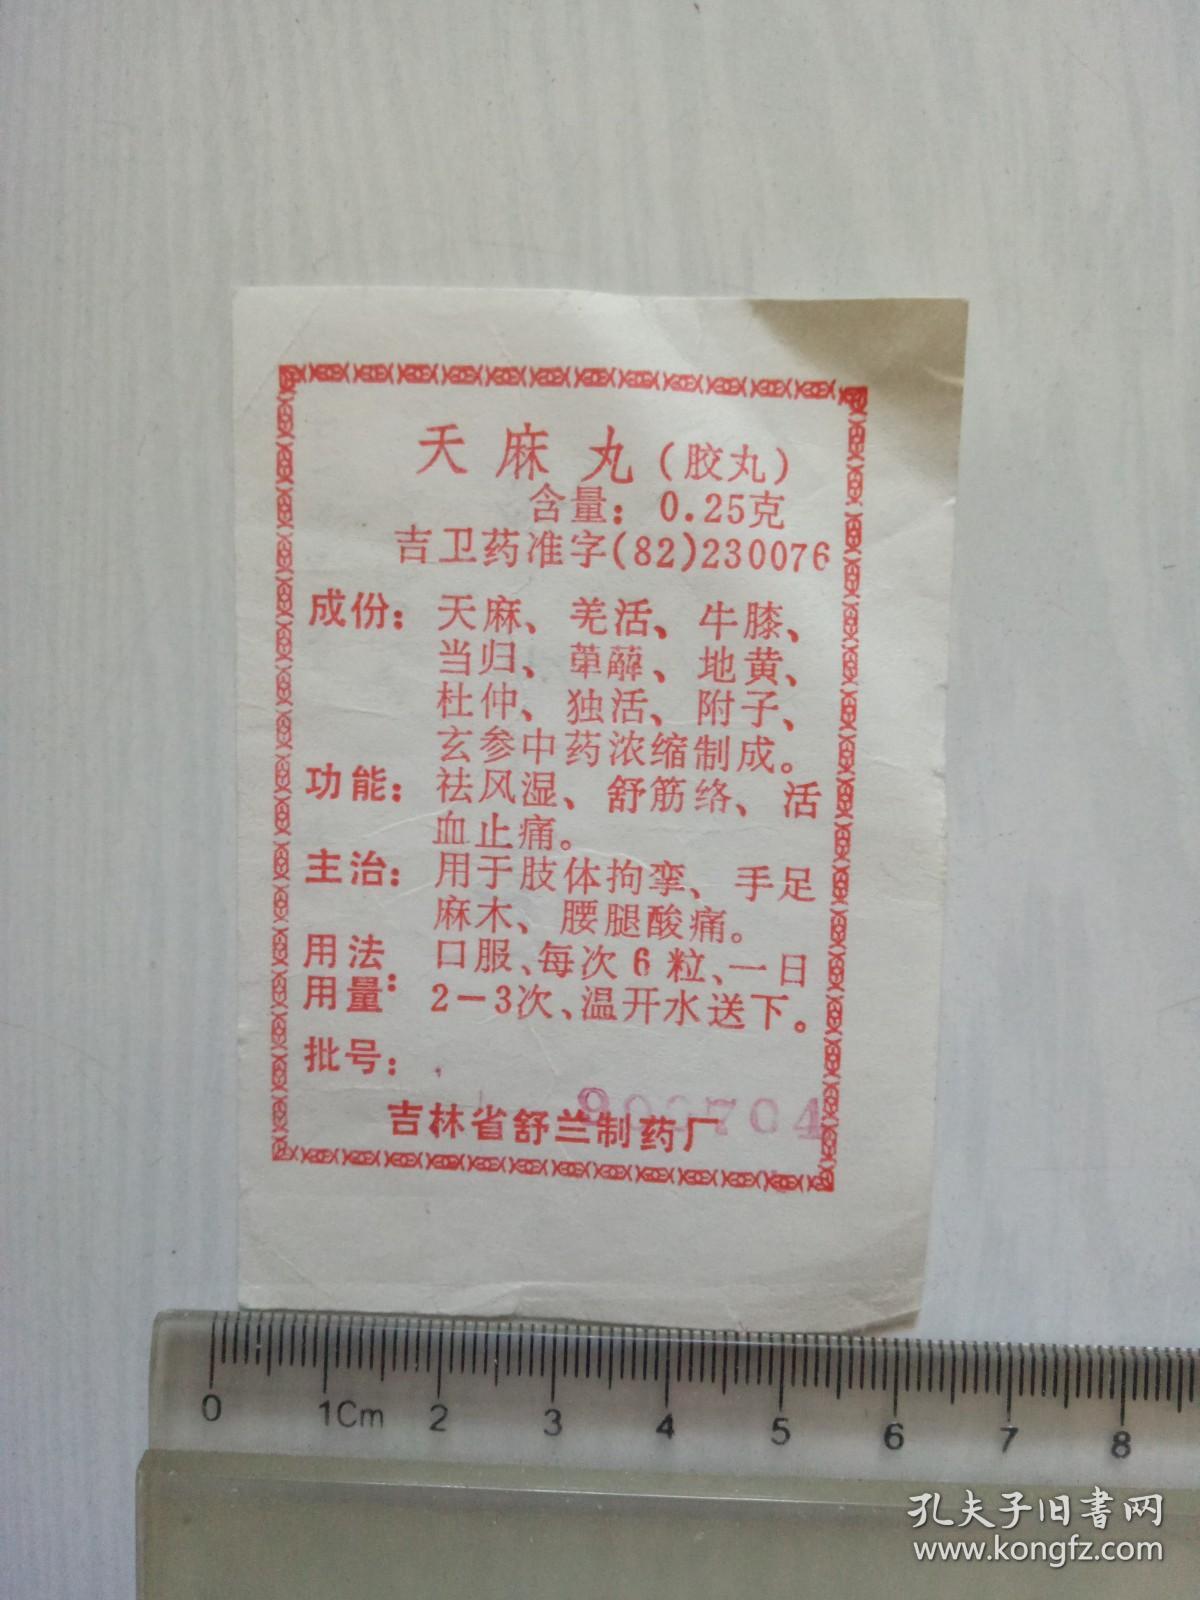 天麻丸(胶丸)
含量：0.25克
吉卫药准字(82)230076
成份：天麻、羌活、牛膝、
当归、萆薢、地黄、
杜仲、独活、附子、
玄参中药浓缩制成。
功能：祛风湿、舒筋络、活
血止痛。
主治：用于肢体拘挛、手足
麻木、腰腿酸痛。
用法 口服、每次6粒、一日
用量：2-3次、温开水送下。
批号：
吉林省舒兰制药厂
0 1Cm 2 3 4 5 6 7 8
孔夫子旧书网
www.kongfz.com